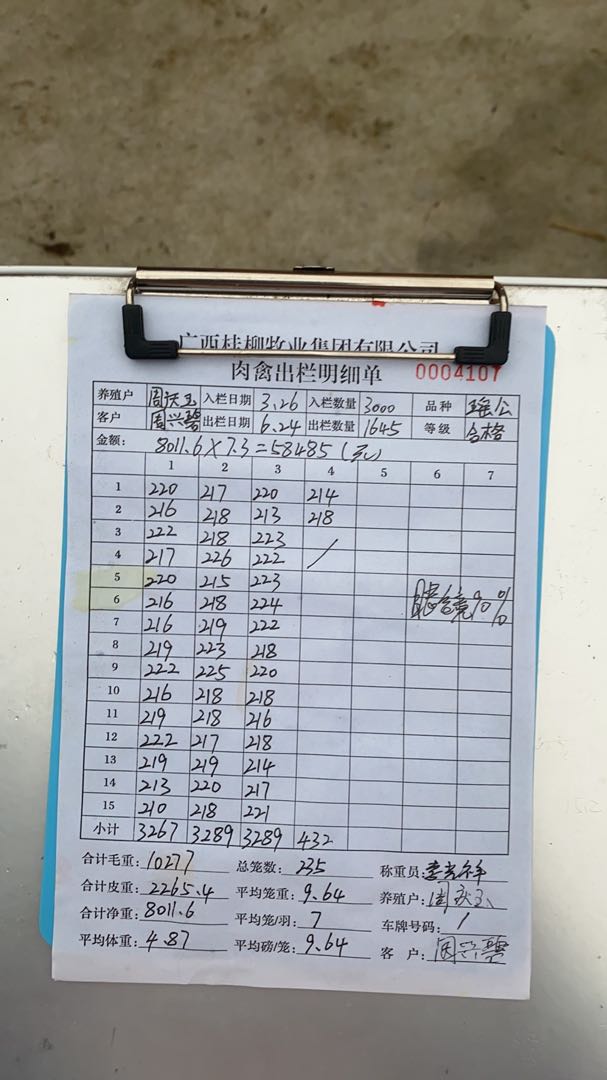 广西桂柳牧业集团有限公司
肉禽出栏明细单 0004107
养殖户 周庆玉 入栏日期 3.26 入栏数量 3000 品种 瑶公
客户 周兴碧 出栏日期 6.24 出栏数量 1645 等级 合格
金额: 8011.6×7.3=58485(元)
1 2 3 4 5 6 7
1 220 217 220 214
2 216 218 213 218
3 222 218 223
4 217 226 222 /
5 220 215 223
6 216 218 224 90%
7 216 219 222
8 219 223 218
9 222 225 220
10 216 218 218
11 219 218 216
12 222 217 218
13 219 219 214
14 213 220 217
15 210 218 221
小计 3267 3289 3289 432
合计毛重: 10277 总笼数: 235 称重员:
合计皮重: 2265.4 平均笼重: 9.64 养殖户: 周庆玉
合计净重: 8011.6 平均笼/羽: 7 车牌号码: /
平均体重: 4.87 平均磅/笼: 9.64 客户: 周兴碧